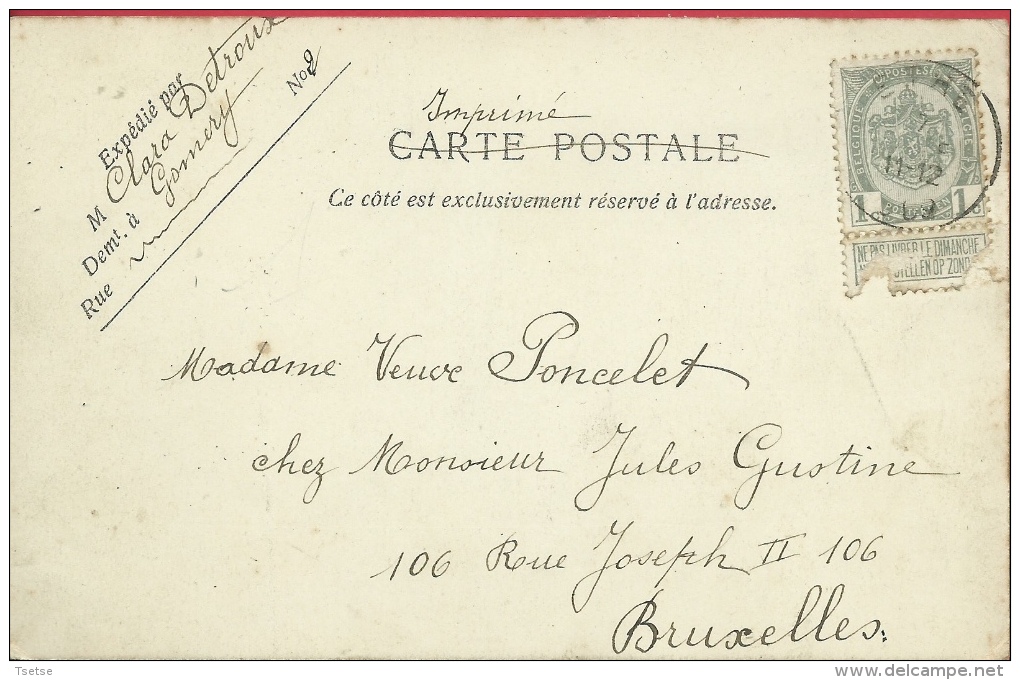 Expédié par
M Clara Detroux
Demt. à Gomery
Rue No. 2
Imprimé
CARTE POSTALE
Ce côté est exclusivement réservé à l'adresse.
POSTES
BELGIQUE
BELGIE
1 1
11-12
09
NE PAS LIVRER LE DIMANCHE
STELLEN OP ZOND
Madame Veuve Poncelet
chez Monsieur Jules Gustine
106 Rue Joseph II 106
Bruxelles.
Tsetse
www.delcampe.net